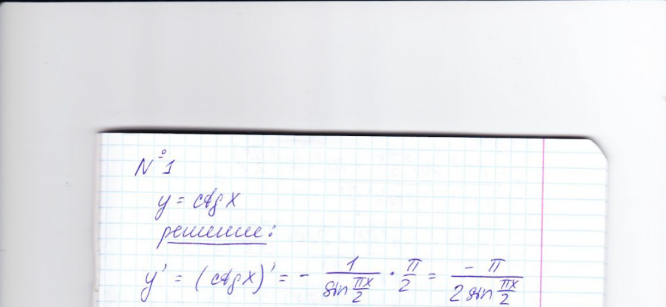 №1
y = ctg x
решение:
y' = (ctg x)' = - 1/sin πx/2 · π/2 = -π/2 sin πx/2